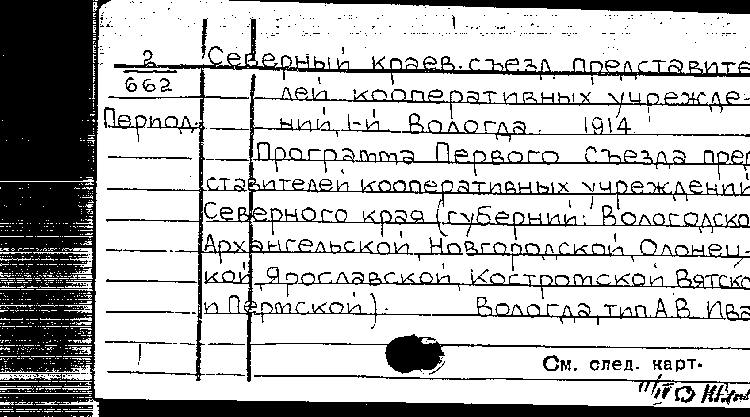 2 Северный краев. съезд представите
662 лей кооперативных учрежде-
Период. ний, 1-й Вологда. 1914
Программа Первого Съезда пред
ставителей кооперативных учреждений
Северного края (губернии: Вологодско
Архангельской, Новгородской, Олонец-
кой, Ярославской, Костромской Вятско
и Пермской). Вологда, тип. А.В. Ива
1
См. след. карт.